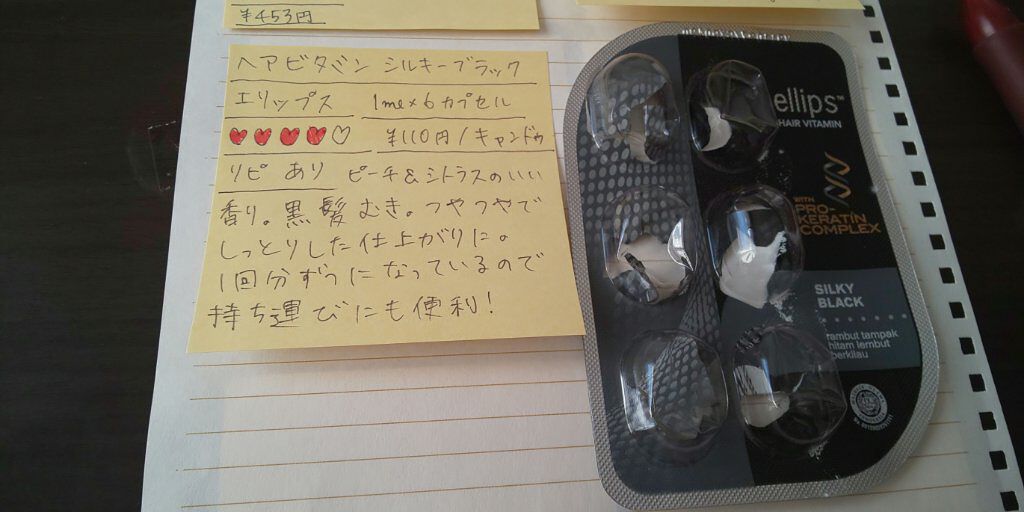 ¥453円
ヘアビタミン シルキーブラック
エリップス 1ml×6カプセル
¥110円/キャンドゥ
リピ あり ピーチ&シトラスのいい
香り。黒髪むき。つやつやで
しっとりした仕上がりに。
1回分ずつになっているので
持ち運びにも便利!
ellips™
HAIR VITAMIN
WITH
PRO-
KERATIN
COMPLEX
SILKY
BLACK
rambut tampak
hitam lembut
berkilau